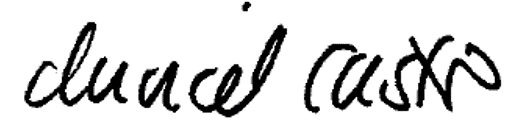 daniel castro